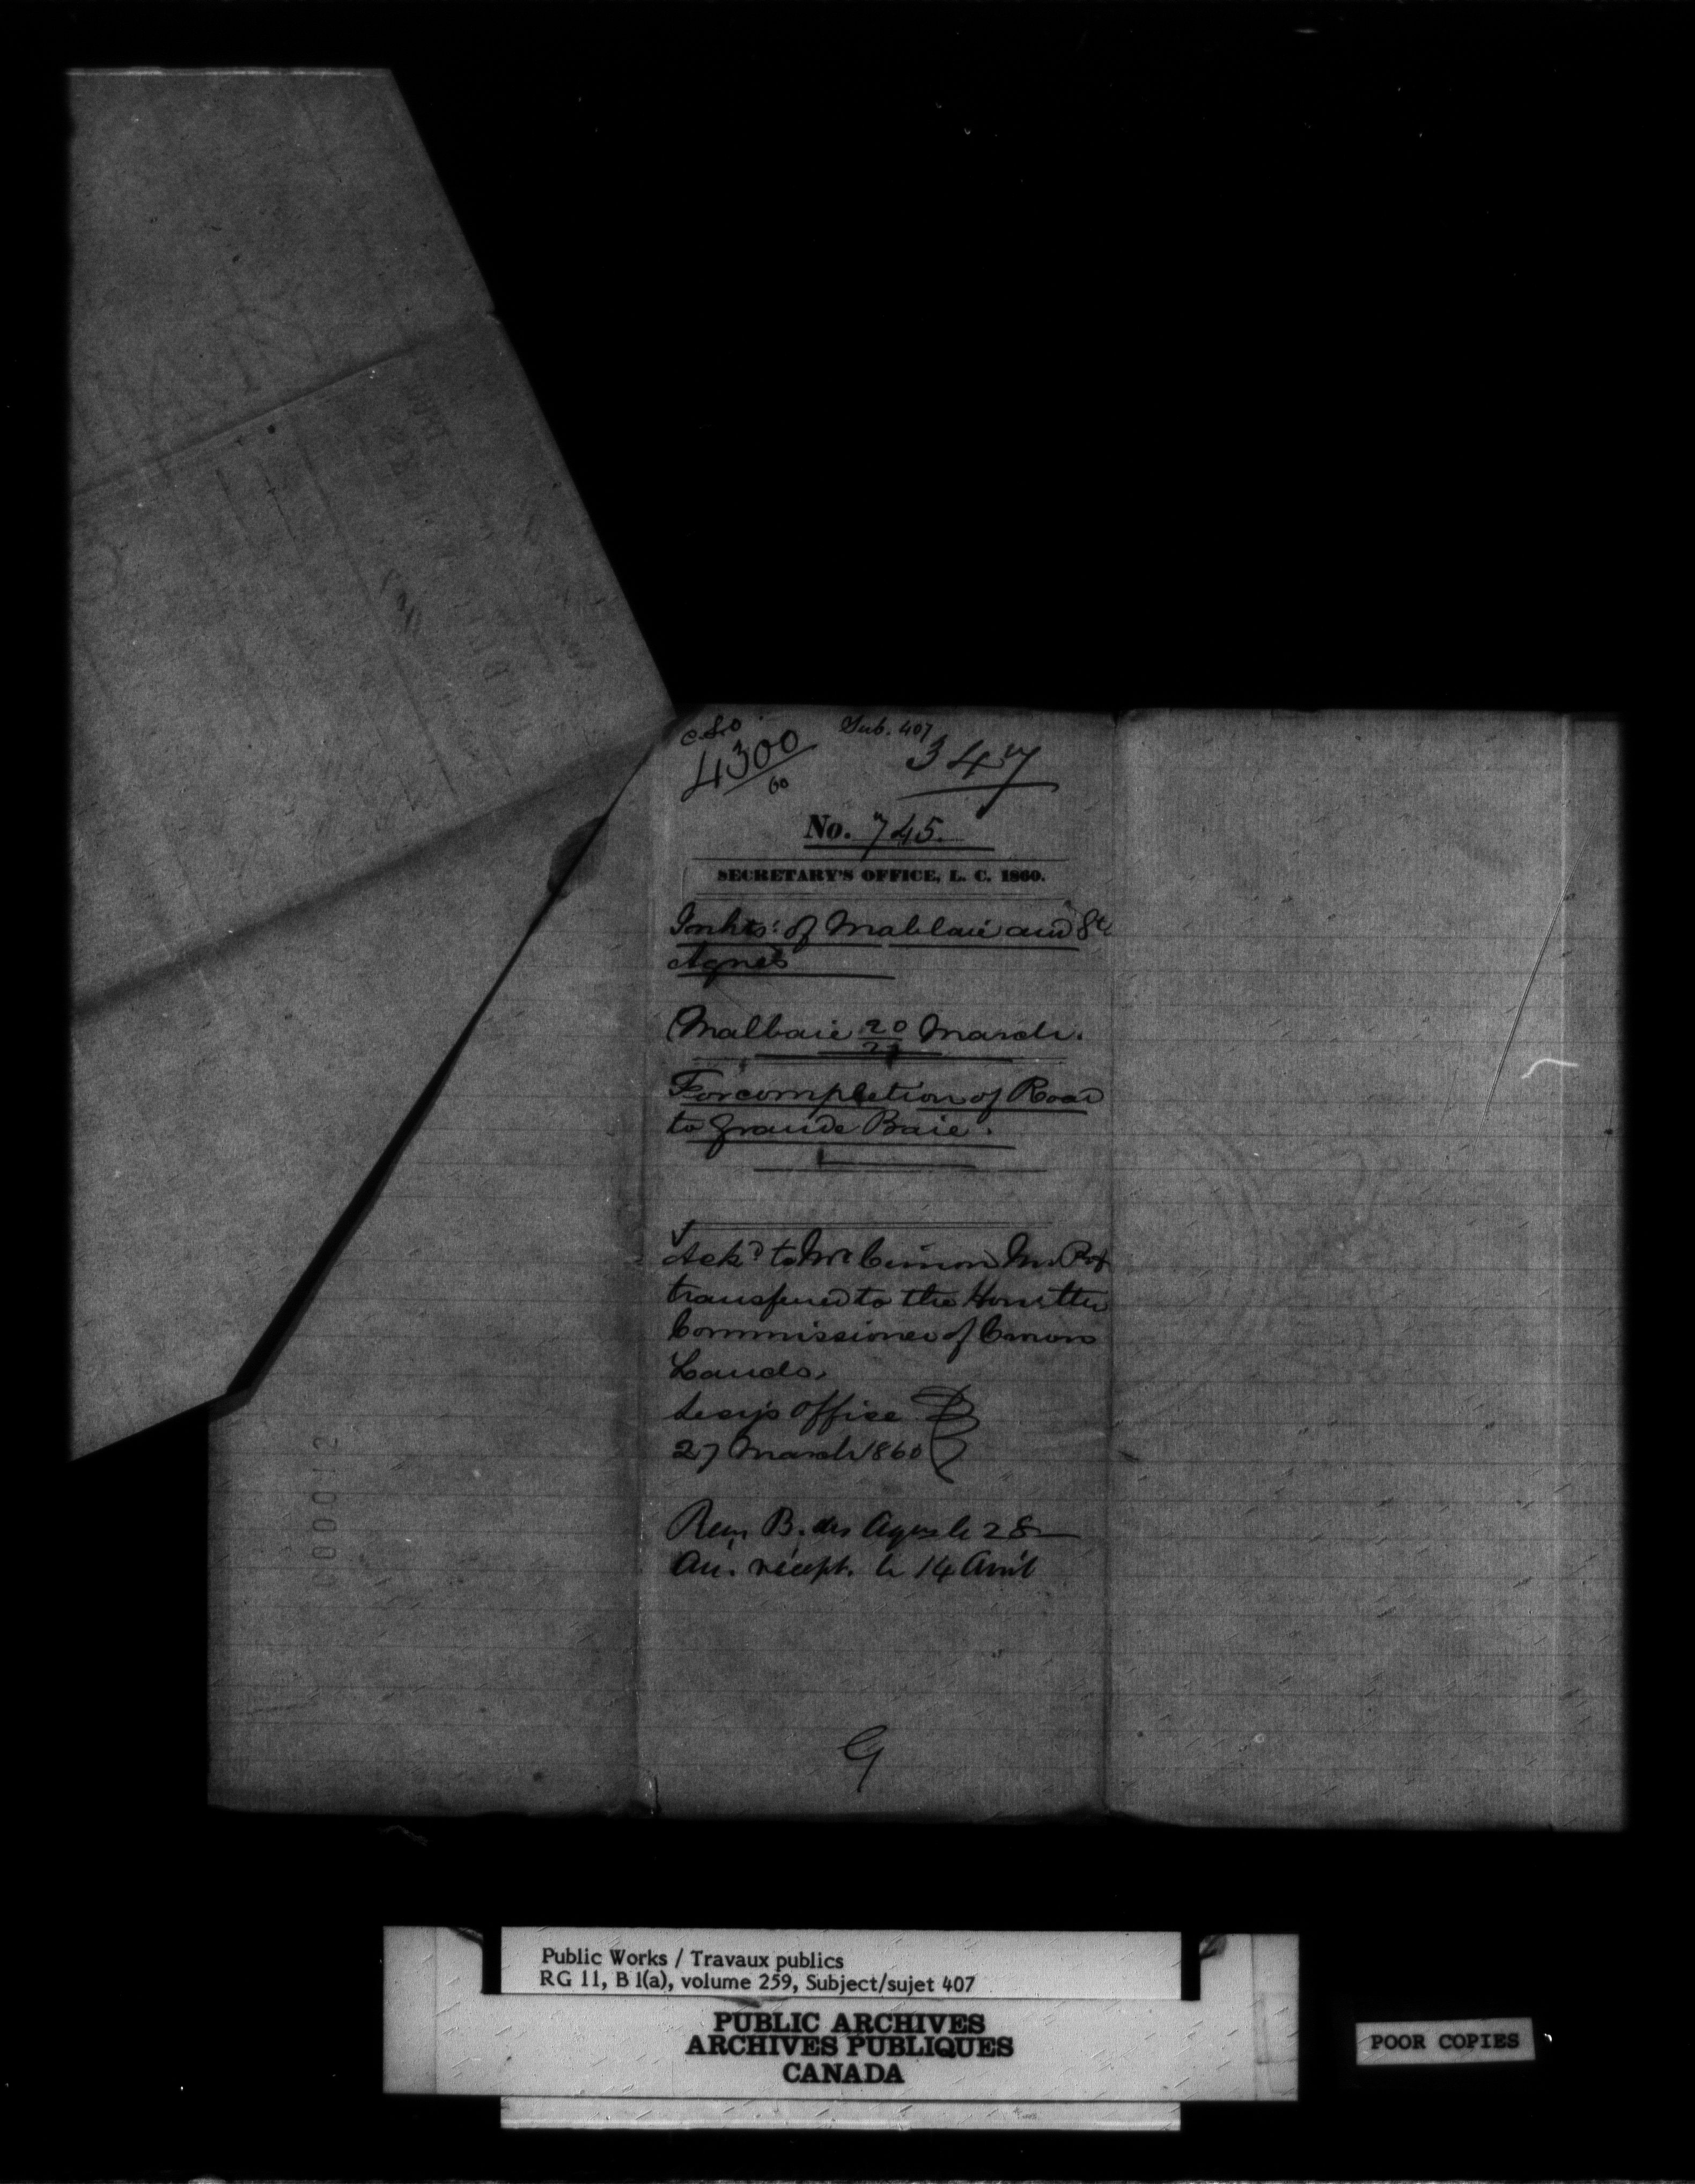 C.S.O
Sub. 407
4300/60
347
No. 745.
SECRETARY'S OFFICE, L. C. 1860.
Inhts: of Malbaie and Ste
Agnes
Malbaie 20/27 March.
For completion of Road
to Grande Baie.
Ackd to Mr Cimon
transferred to the Honble the
Commissioner of Crown
Lands,
Secy's Office
27 March 1860
B. des le 28
récept. le 14 Avril
G
000012
Public Works / Travaux publics
RG 11, B 1(a), volume 259, Subject/sujet 407
PUBLIC ARCHIVES
ARCHIVES PUBLIQUES
CANADA
POOR COPIES